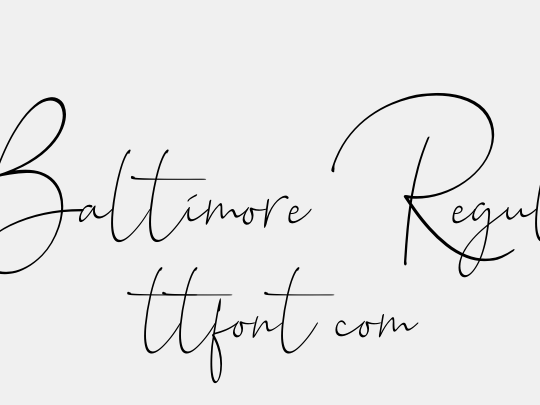 Baltimore Regul
ttfont com